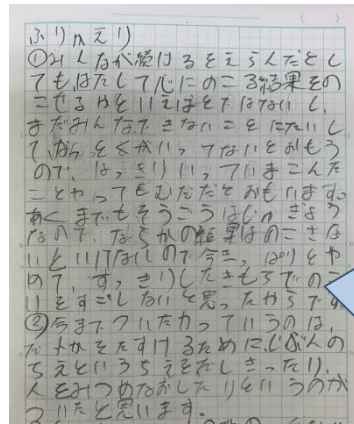 ふりかえり
①みんなが続けるをえらんだとし
ても、はたして心にのこる結果をの
こせるかといえばそではないし、
まだみんなできないことにたいし
て、なっとくがいってないとおもう
ので、はっきりいっていまこんな
ことやってもむだだとおもいます。
あくまでもそうごうはじゅぎょう
なので、ならかの結果はのこさな
いといけないので今きっぱりとや
めて、すっきりしたきもちでのこ
りをすごしたいと思ったからです
②今までついた力っていうのは、
だれかをたすけるためにじぶんの
ちえというちえをだしきったり、
人をみつめなおしたりというのが
ついたと思います。